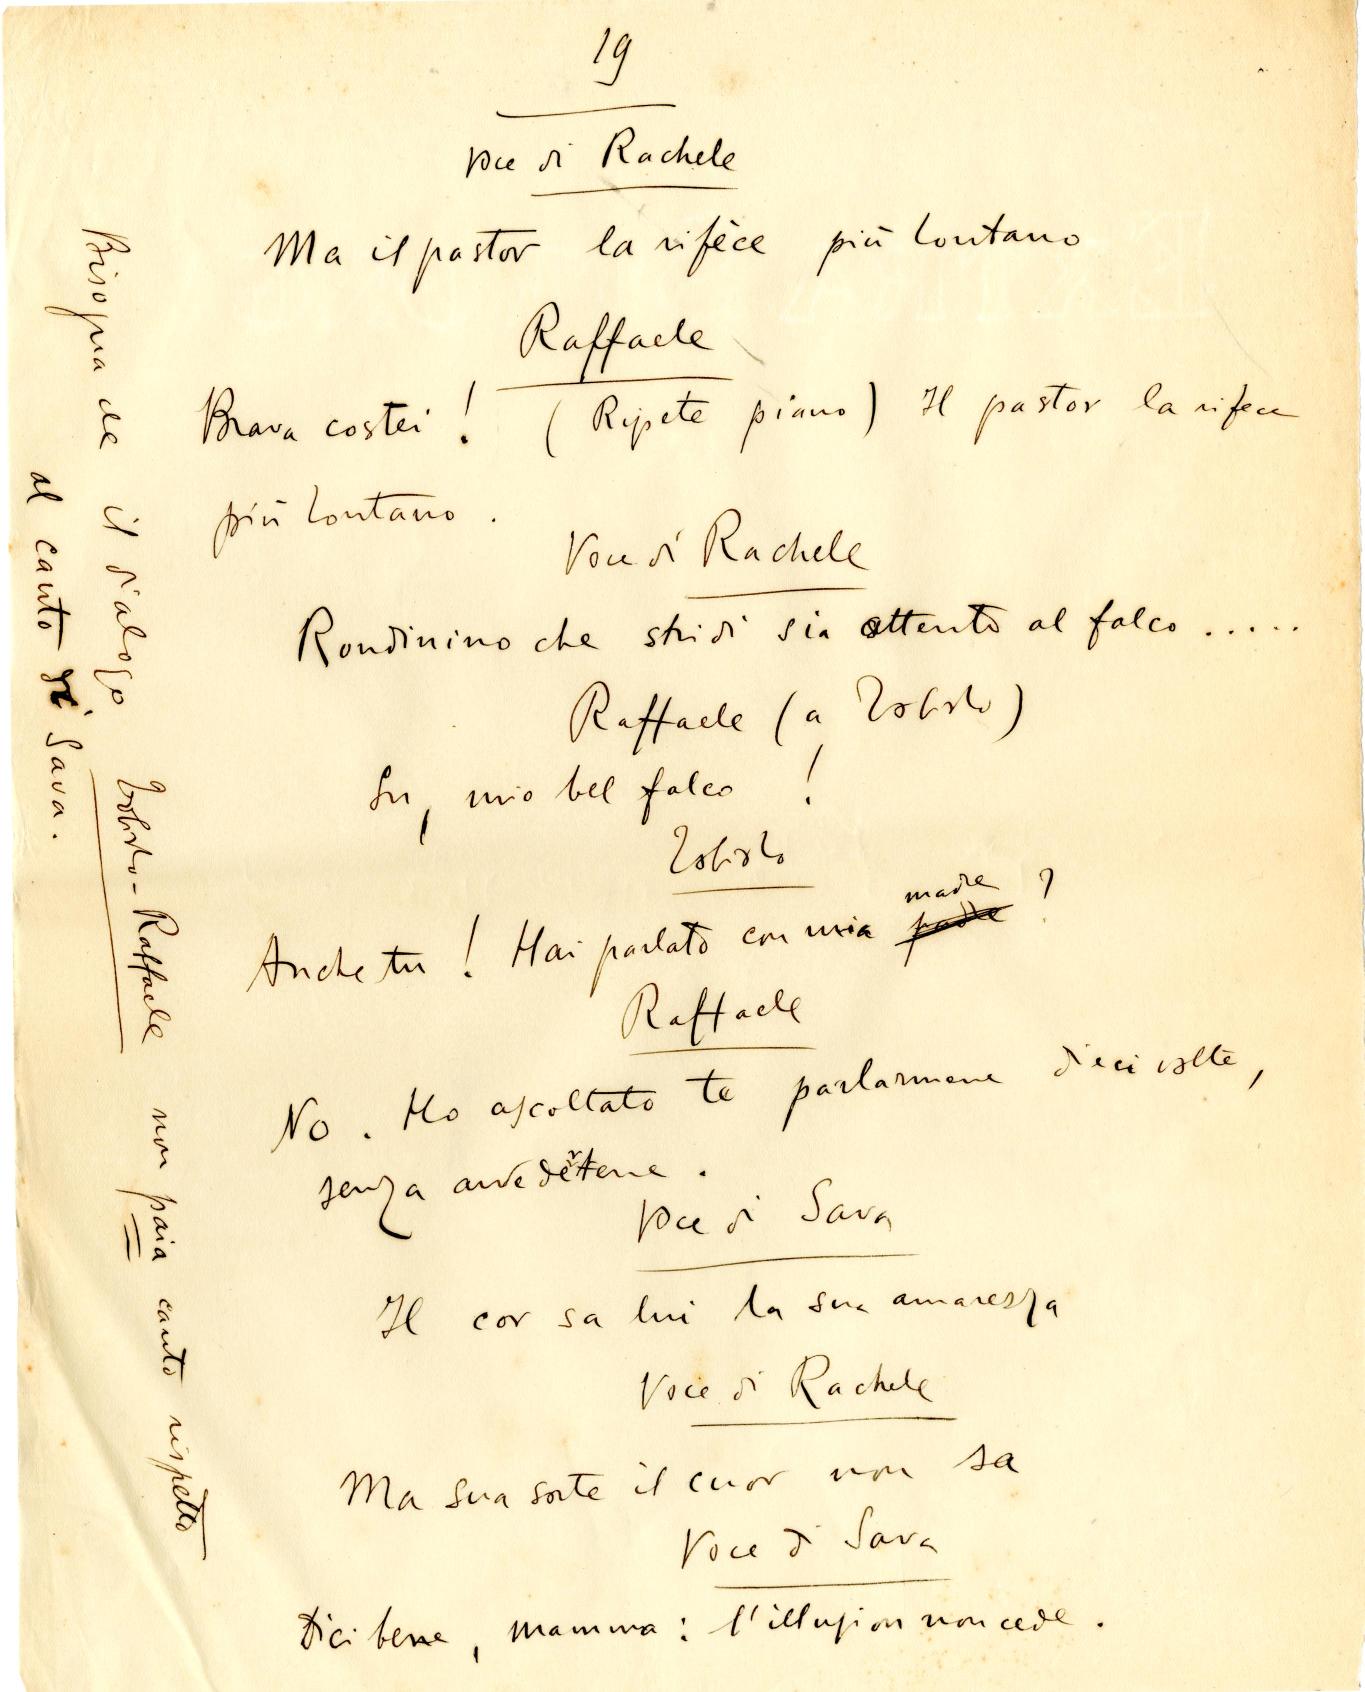 19
Voce di Rachele
Ma il pastor la rifèce più lontano
Raffaele
Brava costei! (Ripete piano) Il pastor la rifece
più lontano.
Voce di Rachele
Rondinino che stridi sia attento al falco.....
Raffaele (a
Su, mio bel falco !
Anche tu! Hai parlato con mia padre madre ?
Raffaele
No. Ho ascoltato te parlarmene dieci volte,
senza avvedertene.
Voce di Sava
Il cor sa lui la sua amarezza
Voce di Rachele
Ma sua sorte il cuor non sa
Voce di Sava
Dici bene, mamma: l'illusion non cede.
Bisogna che il dialogo -Raffaele non paia canto rispetto
al canto di Sava.